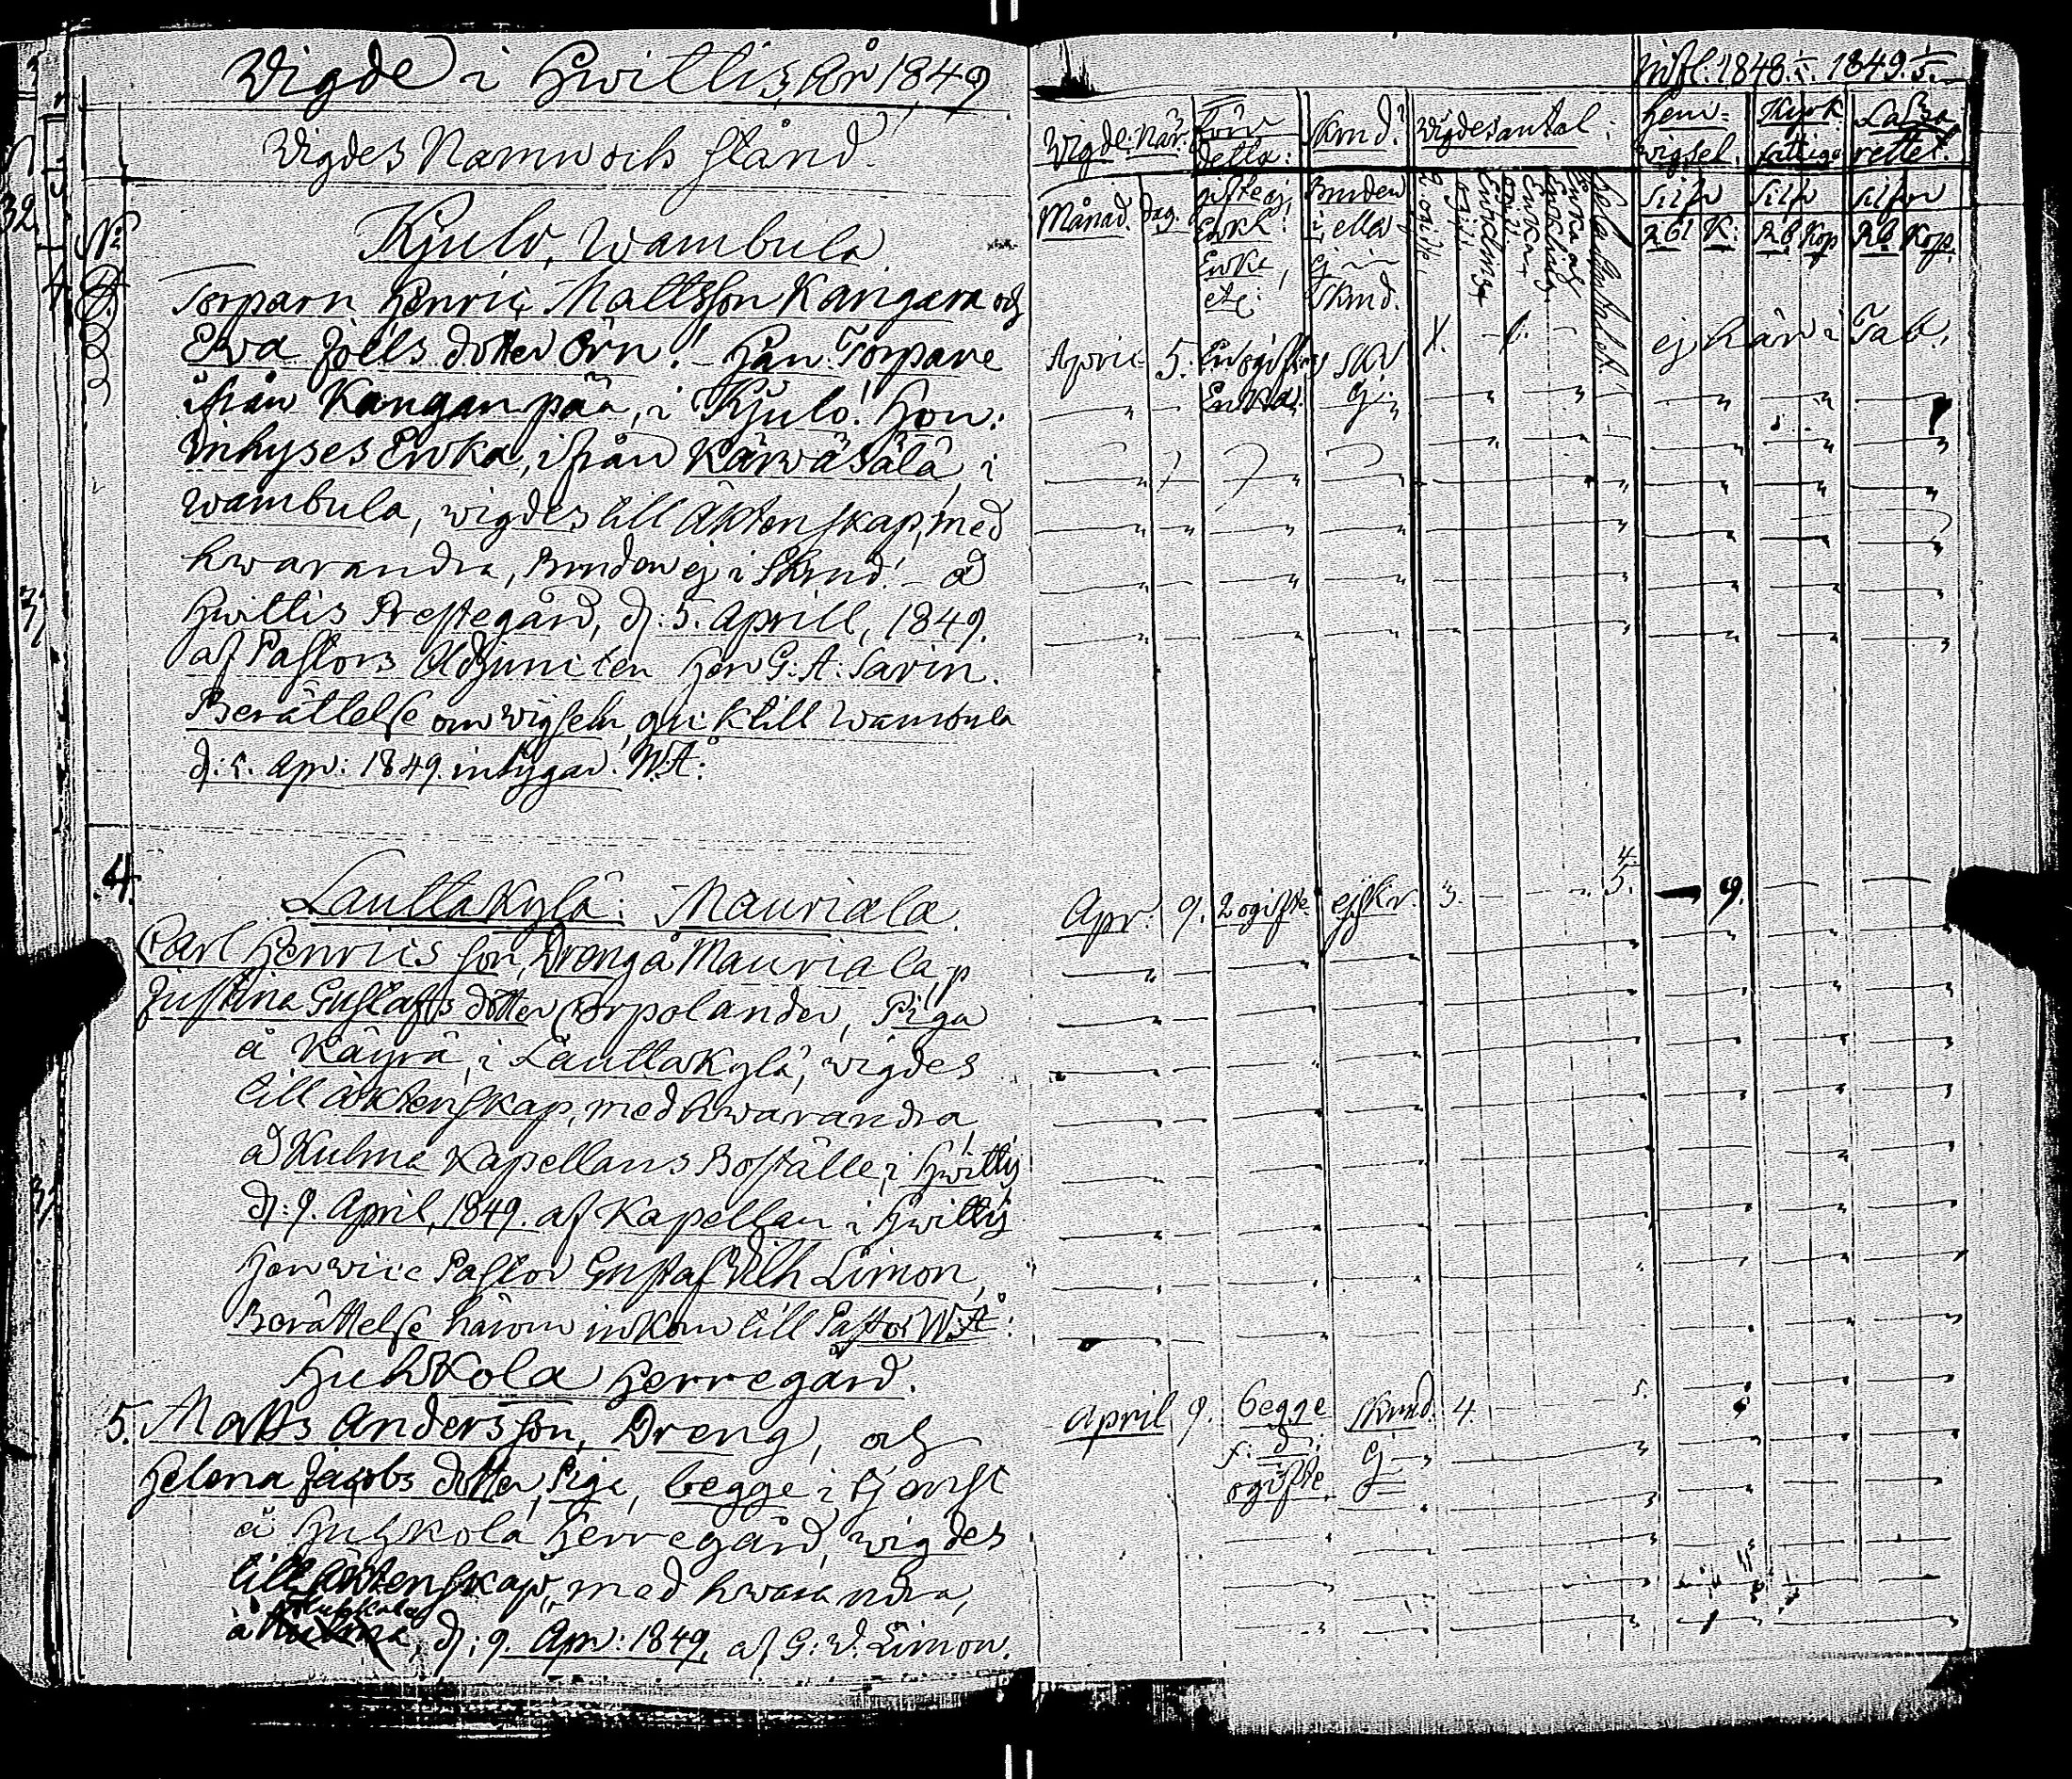 Wigde i Hwittis, År 1849
Wigdes Namn och stånd.
No
Kjulo, Wambula
Torparn Henric Mattsson Kangara och
Ewa Joëls dotter Örn. Han: Torpare
ifrån Kanganpää, i Kjulo! Hon:
Inhyses Enka, ifrån Kärwäsälä, i
Wambula, wigdes till Äktenskap, med
hwarandra, Bruden ej i Skrud! å
Hwittis Prestegård, d: 5. Aprill, 1849.
af Pastors Adjuncten Herr G: A: Savin.
Berättelse om Wigseln, gick till Wambula
d: 5. Apr: 1849. intygar. W.Å:
4. Lauttakylä: Mauriala.
Carl Henrics son, Dreng å Mauriala,
Justina Gustafs dotter Corpolander, Piga
å Käyrä, i Lauttakylä, wigdes
till äktenskap, med hwarandra
å Kulma Kapellans Boställe, i Hwittis
d: 9. April, 1849. af Kapellan i Hwittis
Herr vice Pastor Gustaf Wilh Limon,
Berättelse härom inkom till Pastor W.Å:
Huhkola Herregård.
5. Matts Andersson, Dreng, och
Helena Jacobs dotter, Piga, begge i tjenst
å Huhkola Herregård, wigdes
till Äktenskap, med hwarandra,
Huhkola
å Kulma, d: 9. Apr: 1849. af G: W. Limon.
1848. 1849.
Wigde: När: Förr detta: Skrud? Wigdes antal: Hem=wigsel. Kyrk fattige Laza rettet.
Månad. Dag. gifte ej, Enkl: Enka, etc: Bruden i eller ej i Skrud. 2 ogifte, Silfr Silfr Silfver
Rbl K: Rb Kop Rb Kop.
April 5. Enka. ej. 1. ej här i Tab.
Apr. 9. 2 ogifte. ej skr. 3. 4. 5. 9.
April 9. begge f: d: ogifte. Skrud. ej 4. 5.